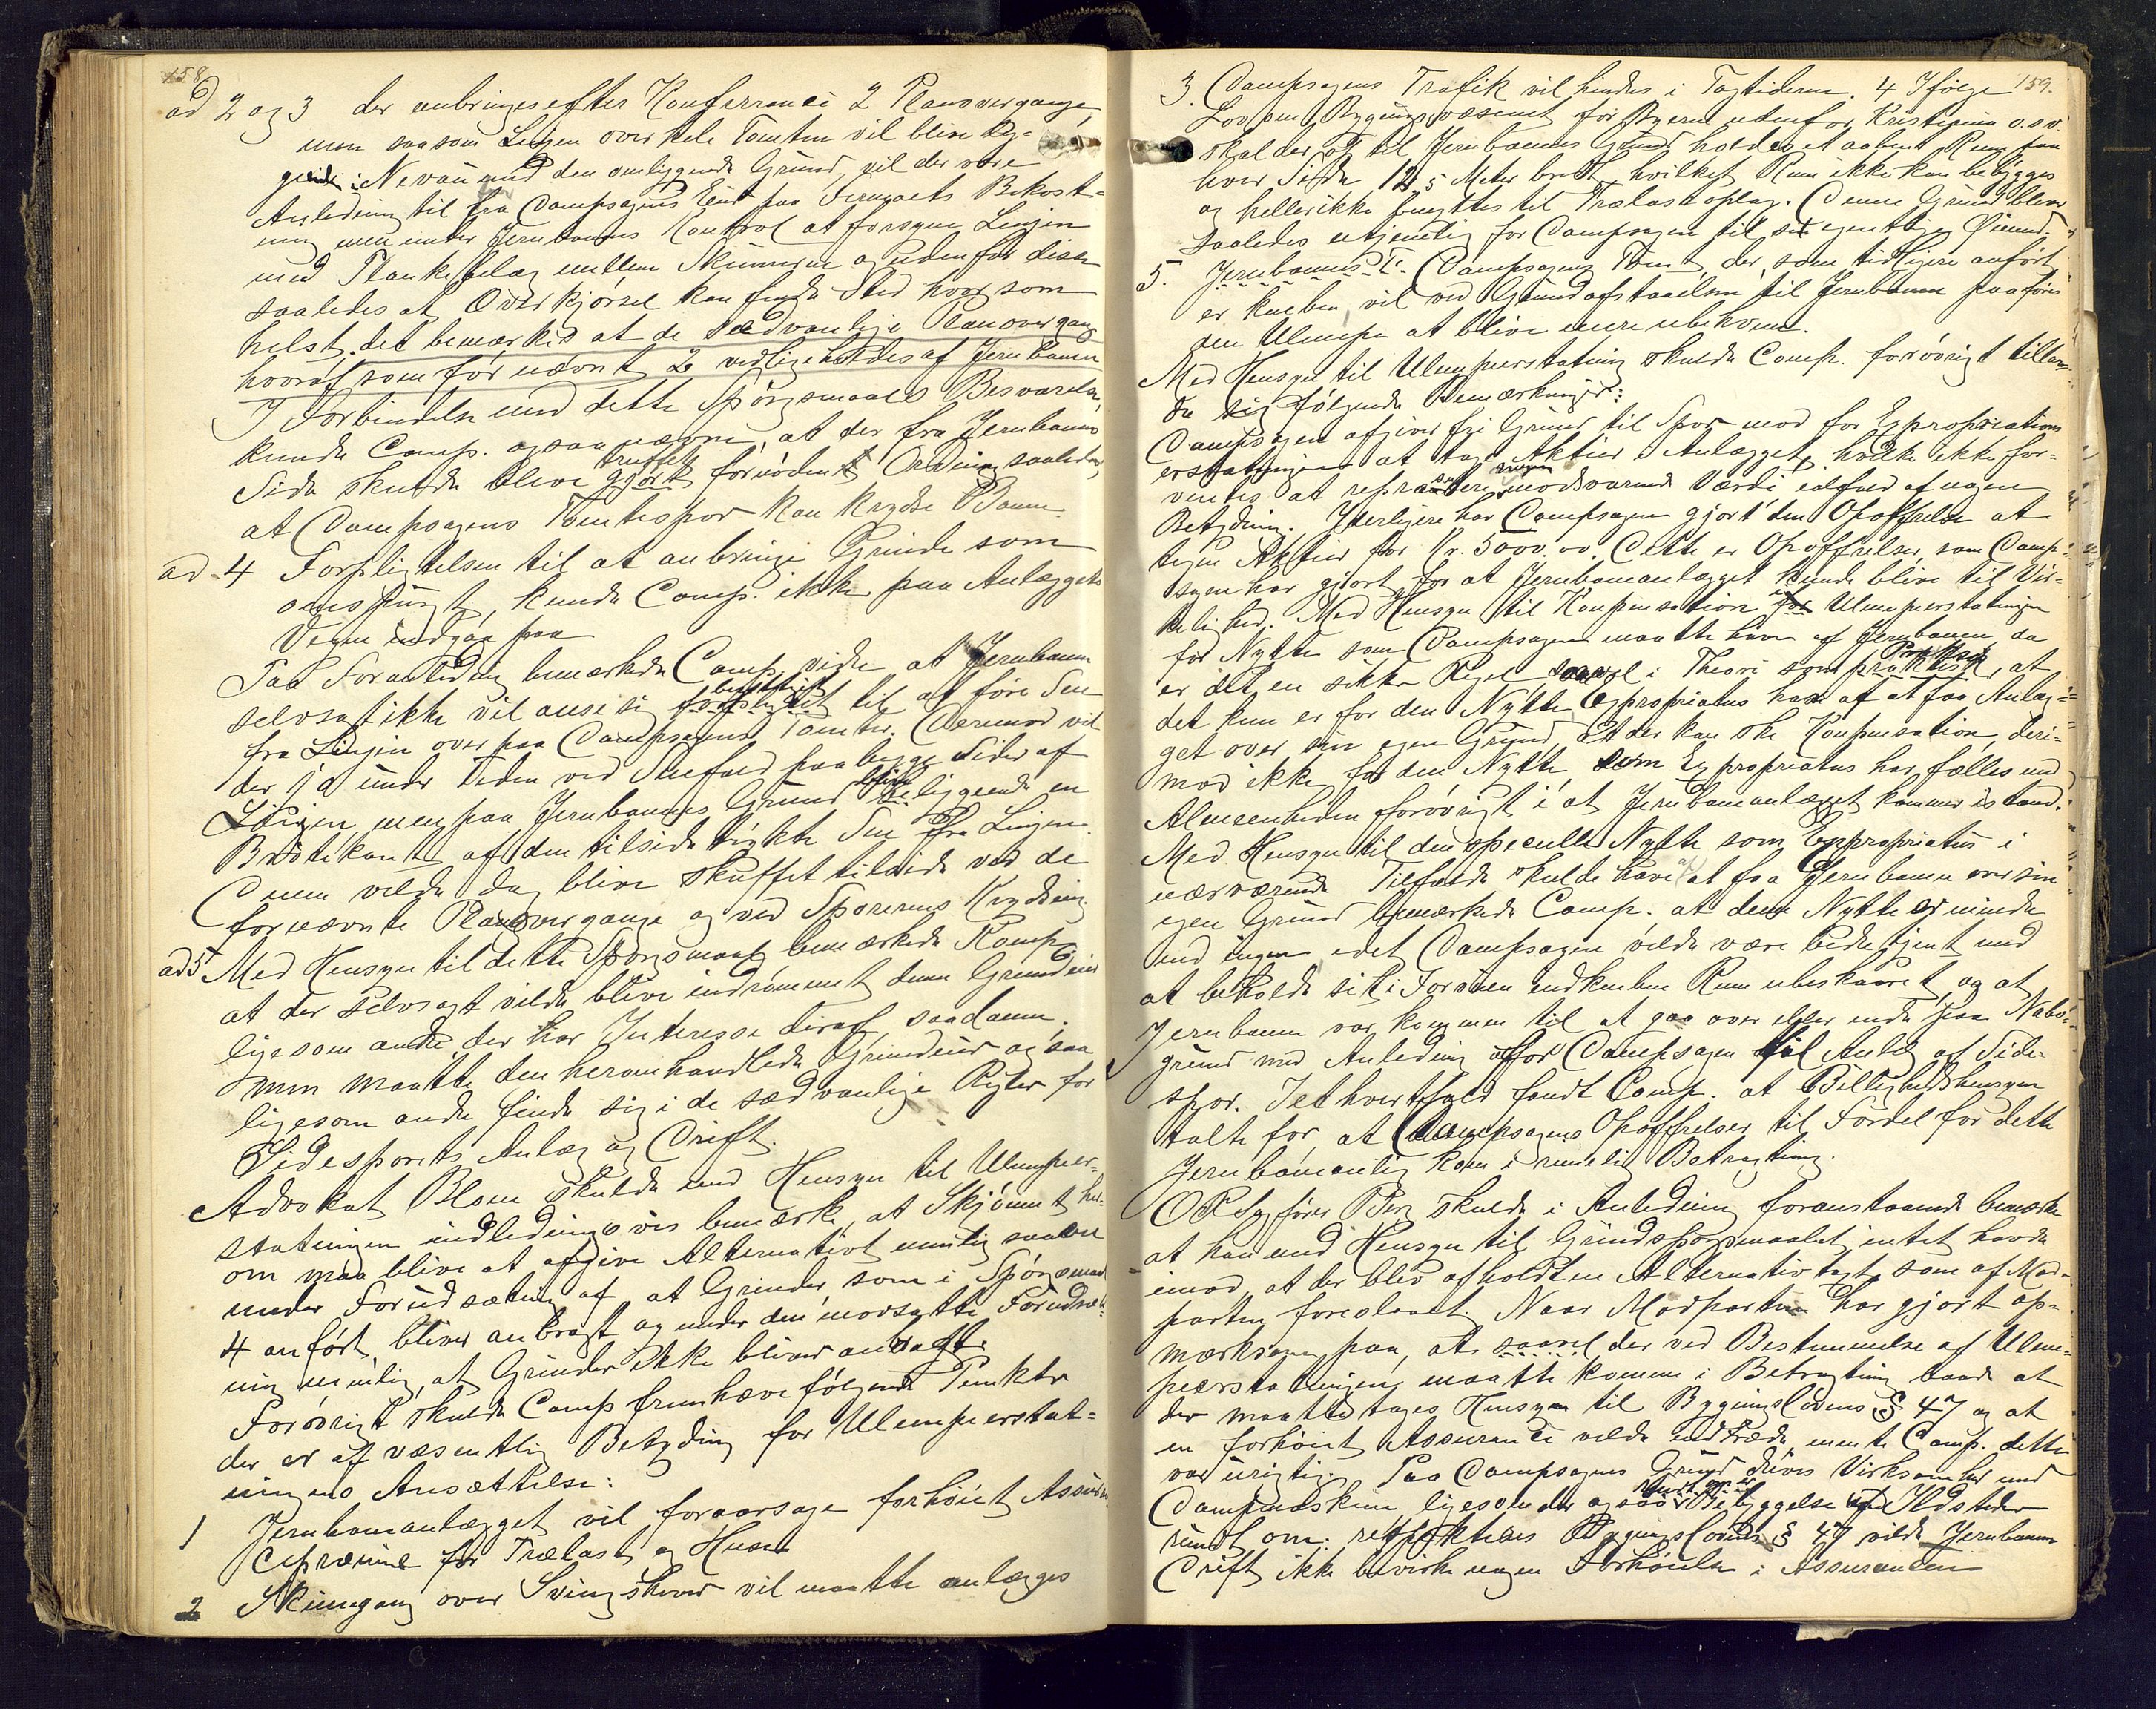 158
ad 2 og 3 der anbringes efter Konferrance 2 Planovergange,
men saasom Linjen over hele Tomten vil blive lig-
gende i Nevau med den omliggende Grund, vil der være
Anledning til fra Dampsagens Eier paa dennes Bekost-
ning men under Jernbanens Kontrol at forsyne Linjen
med Plankebelæg mellem Skinnerne og udenfor disse
saaledes at Overkjørsel kan finde Sted hvor som
helst, det bemærkes at de sædvanlige Planovergang
hvoraf som før nævnt 2 vedligeholdes af Jernbanen
I Forbindelse med dette Spørgsmaals Besvarelse
kunde Comp. ogsaa nævne, at der fra Jernbanens
Side skulde blive gjort truffet fornøden Ordning saaledes,
at Dampsagens Tomtespor kan krydse Banen.
ad 4 Forpligtelsen til at anbringe Grinde som
omspurgt, kunde Comp. ikke paa Anlæggets
Vegne indgaa paa
Paa Foranledning bemærkede Comp. videre at Jernbanen
selvsagt ikke vil anse sig forpligtet berettiget til at føre Sne
fra Linjen over paa Dampsagens Tomter. Derimod vil
der jo under Tiden ved Snefald paa begge Sider af
Linjen men paa Jernbanens Grund blive liggende en
Brøitekant af den tilside rykte Sne fra Linjen.
Denne vilde dog blive skuffet tilside ved de
fornævnte Planovergange og ved Sporenes Krydsning.
ad 5 Med Hensyn til dette Spørgsmaal bemærkede Komp.
at der selvsagt vilde blive indrømmet denne Grundeier
ligesom andre, der har Interesse deraf, saadanne,
men maatte den heromhandlede Grundeier ogsaa
ligesom andre finde sig i de sædvanlige Regler for
Sidesporets Anlæg og Drift.
Advokat Blom skulde med Hensyn til Ulemper-
statningen indledningsvis bemærke, at Skjønnet her-
om maa blive at afgive Alternativt nemlig saavel
under Forudsætning af at Grinder, som i Spørgsmaal
4 anført, bliver anbragt og under den modsatte Forudsæt-
ning nemlig, at Grinder ikke bliver anbragt.
Forøvrigt skulde Comp. fremhæve følgende Punkter
der er af væsentlig Betydning for Ulemperstat-
ningens Ansættelse:
1 Jernbaneanlægget vil foraarsage forhøiet Assuran-
cepræmie for Trælast og Huse
2 Skinnegang over Svingskiver vil maatte anlægges
159.
3. Dampsagens Trafik vil hindres i Togtiderne. 4 Ifølge
Lov om Bygningsvæsenet for Byerne udenfor Kristiania o.s.v.
skal der op til Jernbanens Grund holdes et aabent Rum paa
hver Side 12,5 Meter bredt, hvilket Rum ikke kan bebygges
og heller ikke benyttes til Trælastoplag. Denne Grund bliver
saaledes utjenelig for Dampsagen til sit egentlige Øiemed.
5. Jernbanens T. Dampsagens Tomt, der, som tidligere anført
er kneben vil ved Grundafstaaelsen til Jernbanen paaføres
den Ulempe at blive mere ubekvem.
Med Hensyn til Ulemperstatning skulde Comp. forøvrigt tillade
de sig følgende Bemærkninger:
Dampsagen afgiver fri Grund til Spor mod for Expropriations
erstatningen at tage Aktier i Anlægget, hvilke ikke for-
ventes at repræsentere nogen modsvarende Værdi ialfald af nogen
Betydning. Yderligere har Dampsagen gjort den Opoffrelse at
tegne Aktier for Kr. 5000.00. Dette er Opoffrelser, som Damp-
sagen har gjort for at Jernbaneanlægget kunde blive til Vir-
kelighed. Med Hensyn til Kompensation i Ulemperstatningen
for Nytte som Dampsagen maatte have af Jernbanen, da
er det en sikker Regel saavel i Theori som Praksis, at
det kun er for den Nytte Expropriatus har af at faa Anlæg-
get over sin egen Grund, at der kan ske Kompensation, deri-
mod ikke for den Nytte, som Expropriatus har fælles med
Almeenheden forøvrigt i at Jernbaneanlægget kommer istand.
Med Hensyn til den specielle Nytte som Expropriatus i
nærværende Tilfælde skulde have af at faa Jernbanen over sin
egen Grund bemærkede Comp. at denne Nytte er mindre
end ingen idet Dampsagen vilde være bedre tjent med
at beholde sit i Forveien indknebne Rum ubeskaaret, og at
Jernbanen var kommen til at gaa over eller endog paa Nabo-
grund med Anledning for Dampsagen til Anlæg af Side-
spor. I ethvertfald fandt Comp. at Billighedshensyn
talte for at Dampsagens Opoffrelser til Fordel for dette
Jernbaneanlæg kom i rimelig Betragtning.
ORSagfører Berg skulde i Anledning foranstaaende bemærke
at han med Hensyn til Grindspørgsmaalet intet havde
imod at der blev afholdt en Alternativ Taxt som af Mod-
parten foreslaaet. Naar Modparten har gjort op-
mærksom paa, at saavel der ved Bestemmelse af Ulem-
peerstatningen maatte komme i Betragtning baade at
der maatte tages Hensyn til Bygningslovens § 47 og at
en forhøiet Assurance vilde indtræde, mente Comp. dette
var urigtig. Paa Dampsagens Grund drives Virksomhed med
Dampmaskine, ligesom der ogsaa er Bebyggelse med Ildsteder
rundt om: respektive Bygningslovens § 47 vilde Jernbanens
Drift ikke bevirke nogen Forhøielse i Assurancen